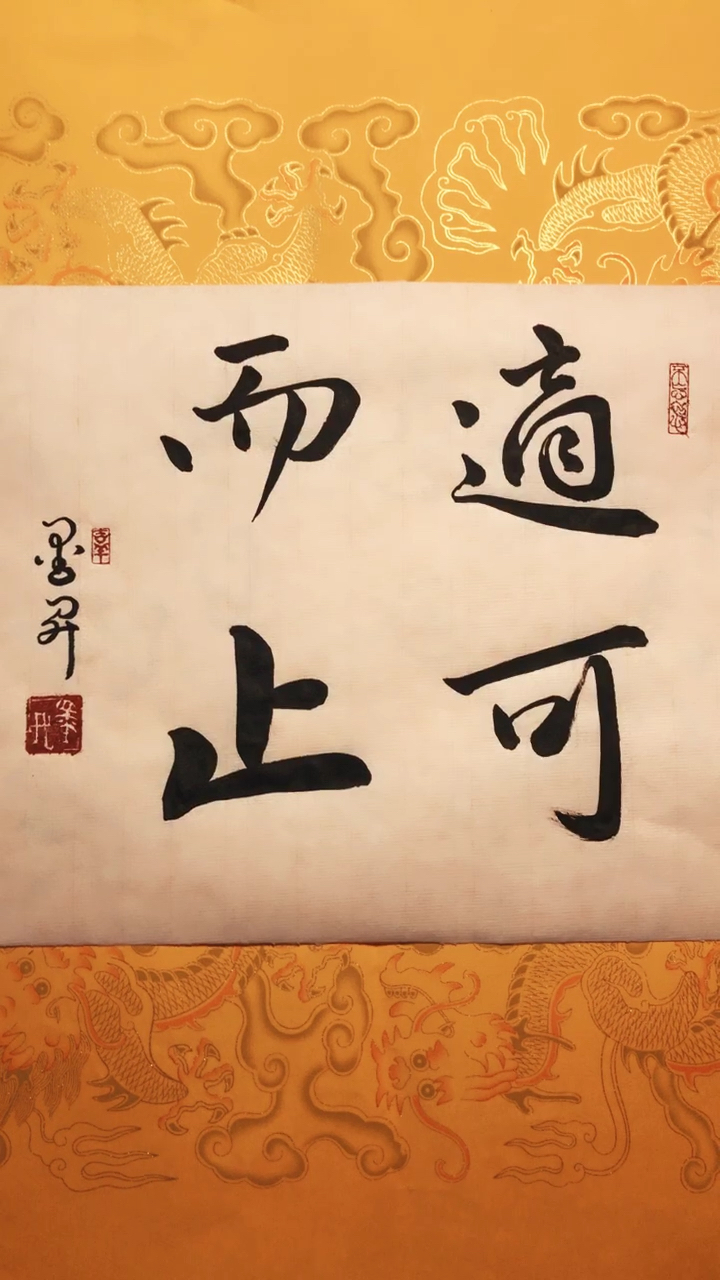 適可
而止
墨昇